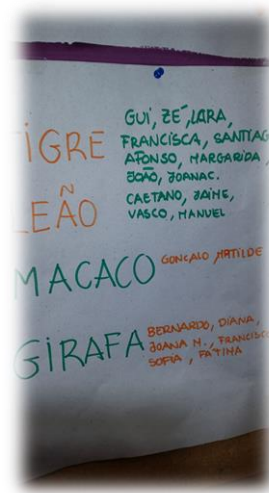 TIGRE
GUI, ZÉ, LARA,
FRANCISCA, SANTIAGO
AFONSO, MARGARIDA,
JOÃO, JOANA C.
LEÃO
CAETANO, JAIME,
VASCO, MANUEL
MACACO GONÇALO MATILDE
GIRAFA
BERNARDO, DIANA,
JOANA M., FRANCISCO
SOFIA, FATIMA